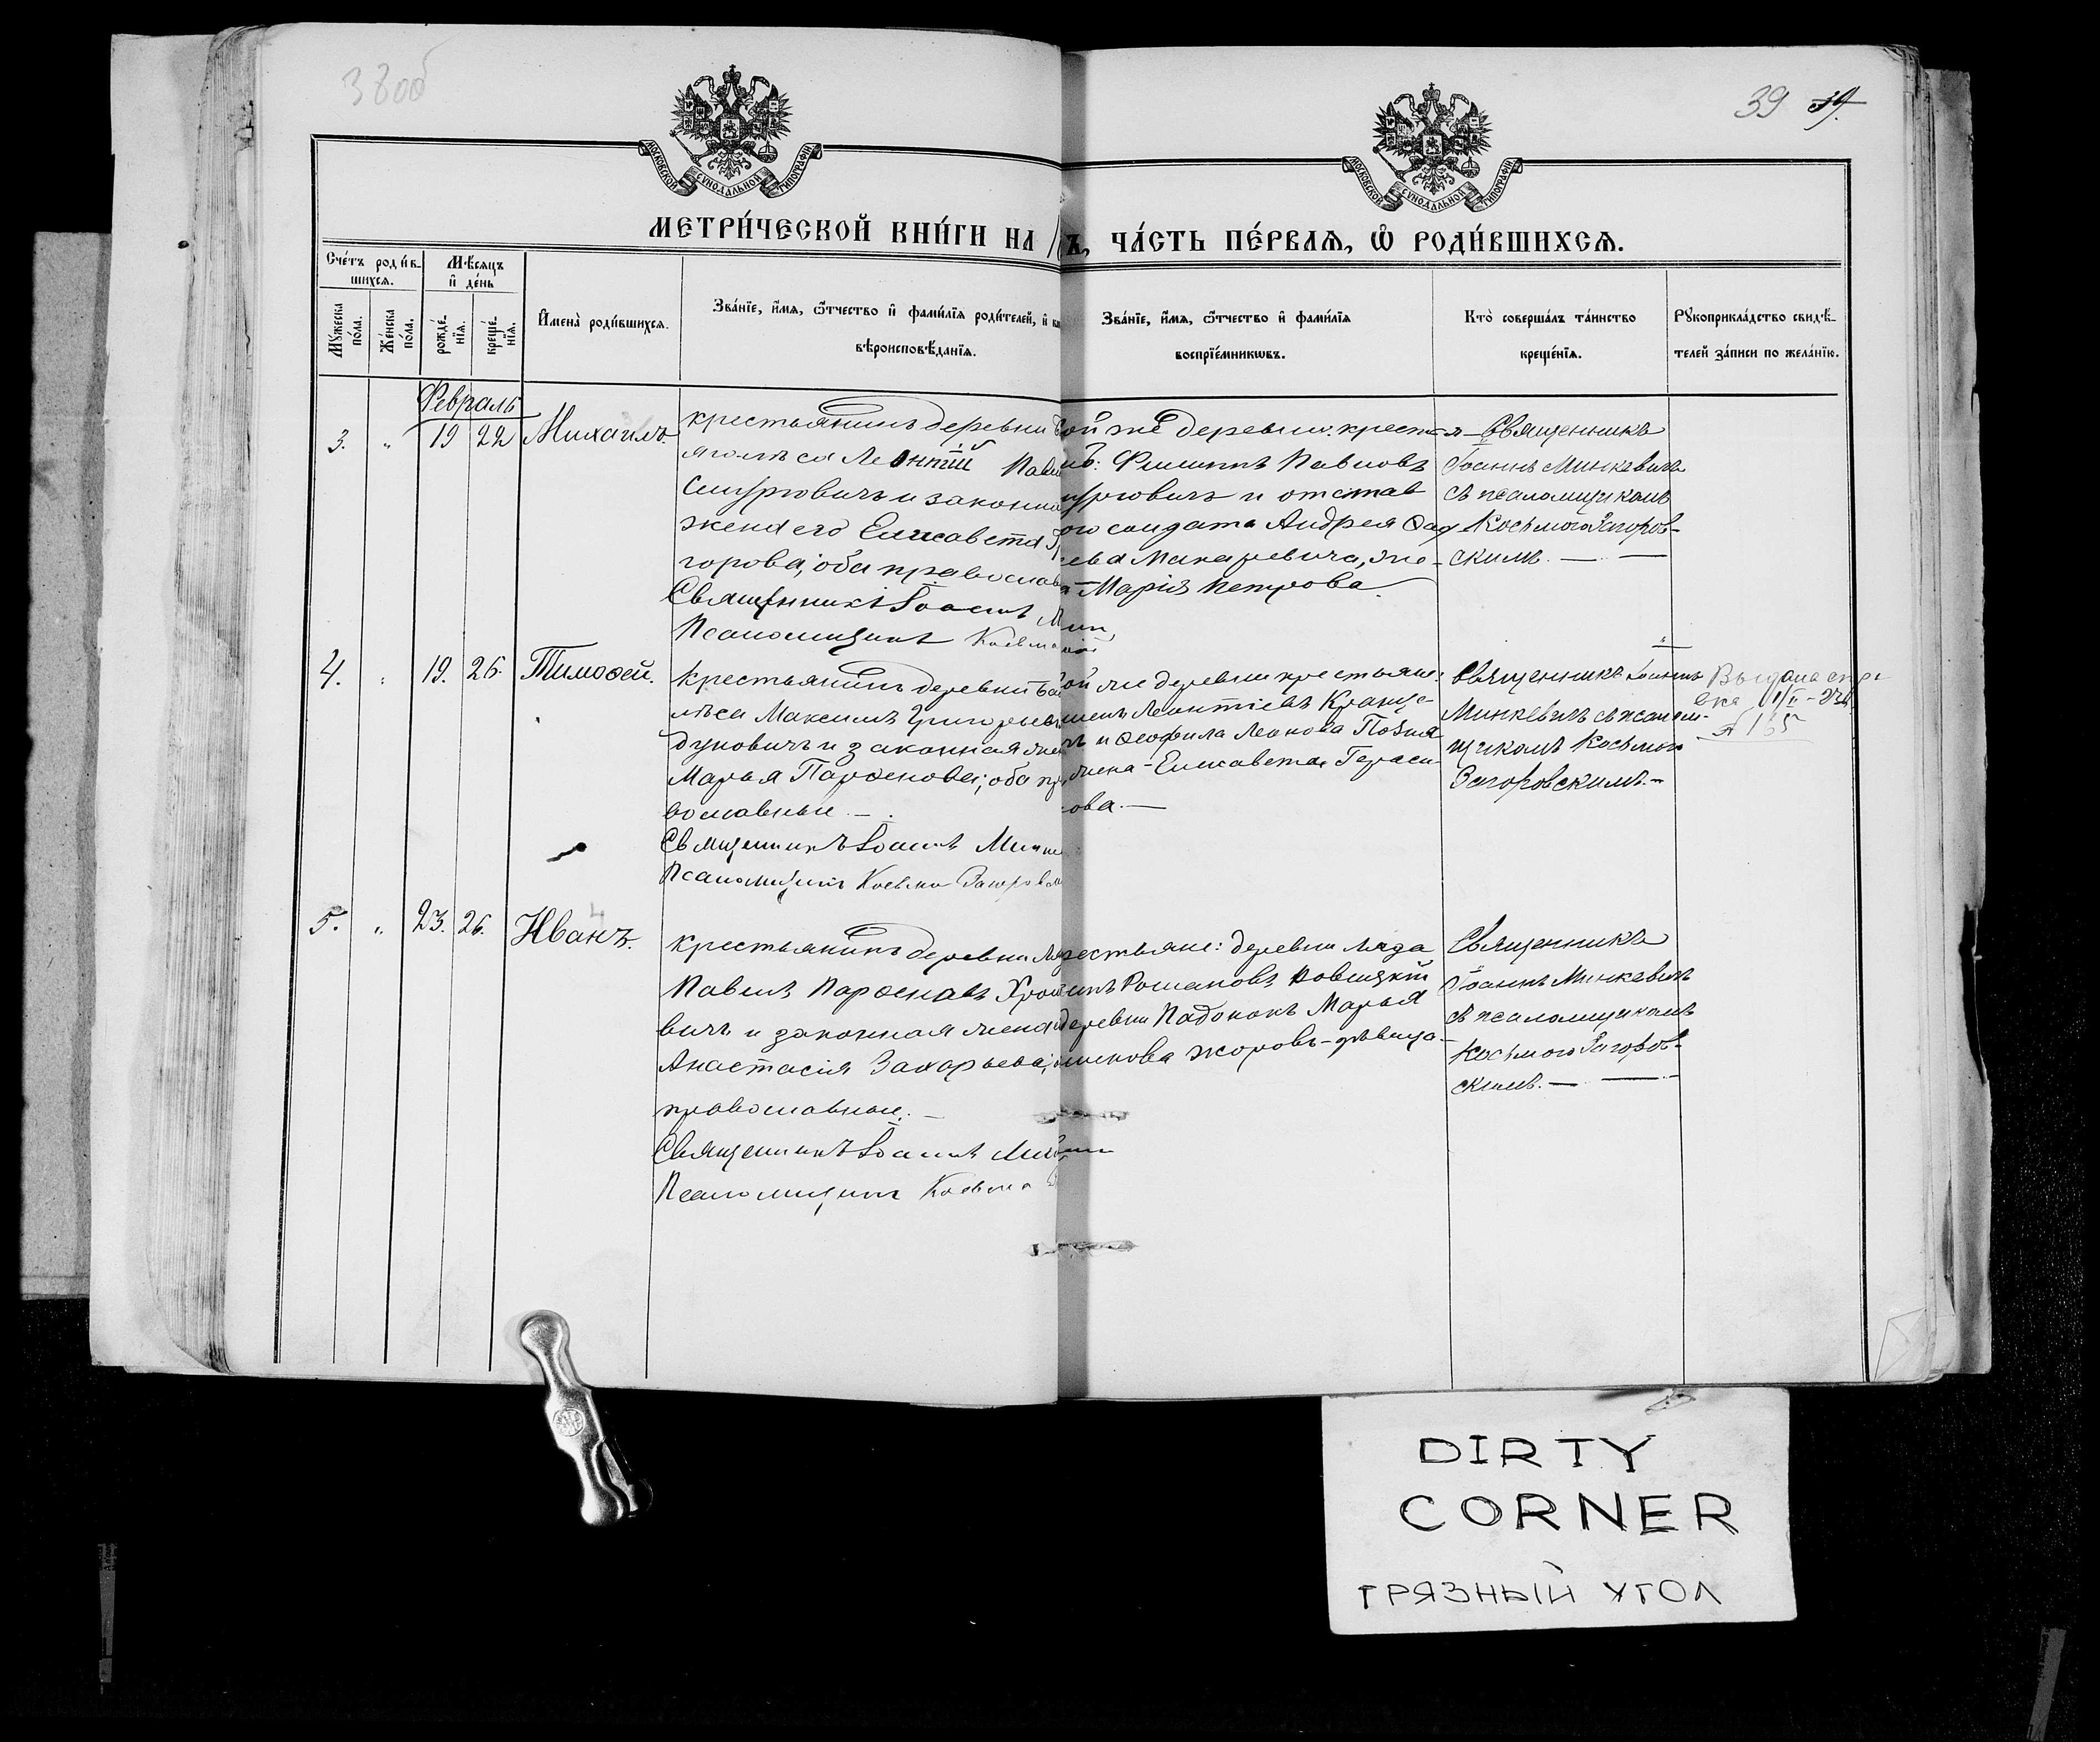 38об
39 39.
МОСКОВСКОЙ СѴНОДАЛЬНОЙ ТИПОГРАФІИ
МОСКОВСКОЙ СѴНОДАЛЬНОЙ ТИПОГРАФІИ
МЕТРИ́ЧЕСКОЙ КНИ́ГИ НА
Ъ, ЧА́СТЬ ПЕ́РВАЯ, Ѿ РОДИ́ВШИХСЯ.
Сче́тъ роди́в-
шихся.
Мѣ́сяцъ
и́ де́нь
Му́жеска
по́ла.
Же́нска
по́ла.
рожде́-
нїя.
креще́-
нїя.
И҆мена̀ роди́вшихся.
Зва́нїе, и҆́мя, ѻ҆́тчество и҆ фами́лїя роди́телей, и҆
вѣроисповѣ́данїя.
Зва́нїе, и҆́мя, ѻ҆́тчество и҆ фами́лїя
воспрїе́мникѡвъ.
Кто̀ соверша́лъ та́инство
креще́нїя.
Рꙋкоприкла́дство свидѣ́-
телей за́писи по жела́нїю.
Февраль
3. " 19 22 Михаилъ
крестьянинъ деревни
Леонтій
и законна
жена его Елисавета
горова; оба православ
Священникъ Іоаннъ
Псаломщикъ Косьма
ой же деревни: крестья-
Филиппъ Павловъ
и отстав
ого солдата Андрея Фад
ева Макаревича, же-
Марія Петрова.
Священникъ
Іоаннъ Минкевичъ
съ псаломщикомъ
Косьмою Загоров-
скимъ. —
4. " 19. 26. Тимофей.
Крестьянинъ деревни
лѣса Максимъ Григорьев
дуковичъ и законная жен
Марья Парфенова; оба пр
вославные. —
Священникъ Іоаннъ Минке
Псаломщикъ Косьма Загоровс
ой же деревни крестьян:
Леонтіевъ
и Феофила Леонова
жена - Елисавета Гераси
ова. —
Священникъ Іоаннъ
Минкевичъ съ псалом-
щикомъ Косьмою
Загоровскимъ. —
Выдана спра
вка
5. " 23. 26. Иванъ.
крестьянинъ деревни
Павелъ Парфеновъ
вичъ и законная жена
Анастасія Захарьева;
православные. —
Священникъ Іоаннъ
Псаломщикъ Косьма
рестьяне: деревни Ляда
Романовъ Новицкій
деревни Падококъ Марья
жоровъ - дѣвица -
Священникъ
Іоаннъ Минкевичъ
съ псаломщикомъ
Косьмою Загоров-
скимъ. —
DIRTY
CORNER
ГРЯЗНЫЙ УГОЛ